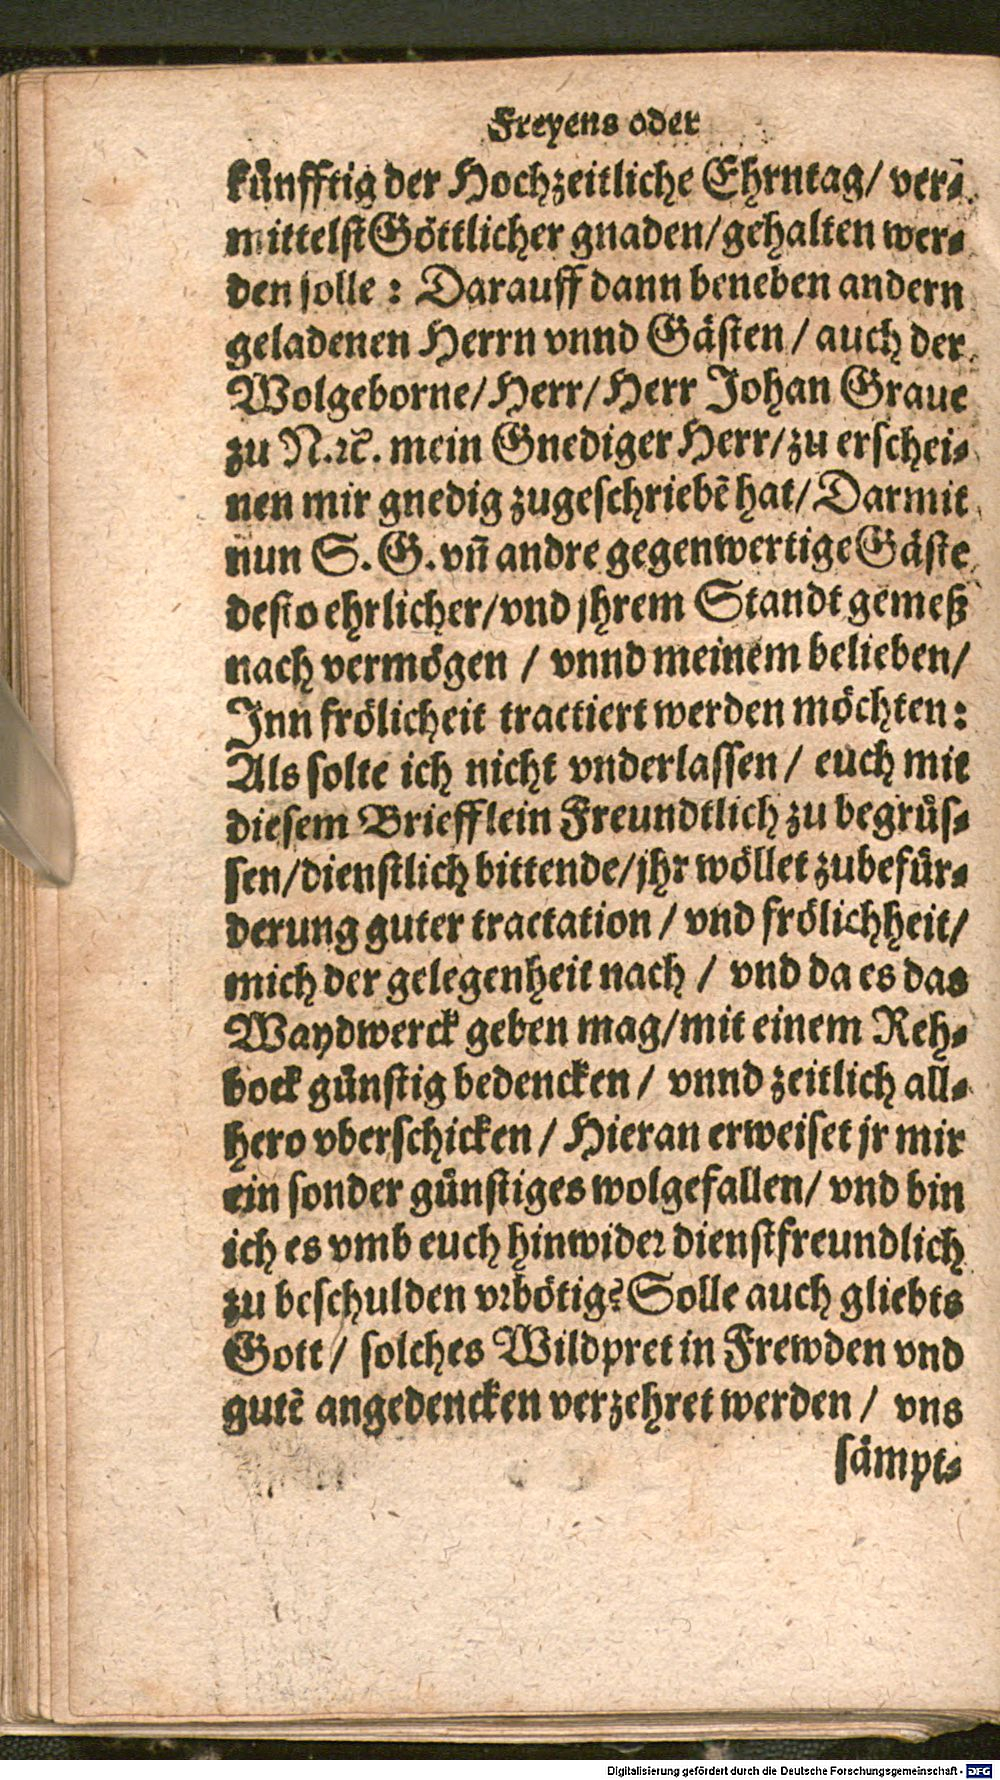 Freyens oder
künfftig der Hochzeitliche Ehrntag/ ver-
mittelst Göttlicher gnaden/gehalten wer-
den solle : Darauff dann beneben andern
geladenen Herrn vnnd Gästen / auch der
Wolgeborne/Herr/Herr Johan Graue
zu N.ꝛc. mein Gnediger Herr/zu erschei-
nen mir gnedig zugeschriebẽ hat/Darmit
nun S. G. vñ andre gegenwertige Gäste
desto ehrlicher/vnd jhrem Standt gemeß
nach vermögen / vnnd meinem belieben/
Inn frölicheit tractiert werden möchten:
Als solte ich nicht vnderlassen / euch mit
diesem Briefflein Freundtlich zu begrüs-
sen/dienstlich bittende/jhr wöllet zubefür-
derung guter tractation / vnd frölichheit/
mich der gelegenheit nach / vnd da es das
Waydwerck geben mag/mit einem Reh-
bock günstig bedencken / vnnd zeitlich all-
hero vberschicken / Hieran erweiset jr mir
ein sonder günstiges wolgefallen/ vnd bin
ich es vmb euch hinwider dienstfreundlich
zu beschulden vrbötig? Solle auch gliebts
Gott / solches Wildpret in Frewden vnd
gutẽ angedencken verzehret werden / vns
sämpt-
Digitalisierung gefördert durch die Deutsche Forschungsgemeinschaft - DFG